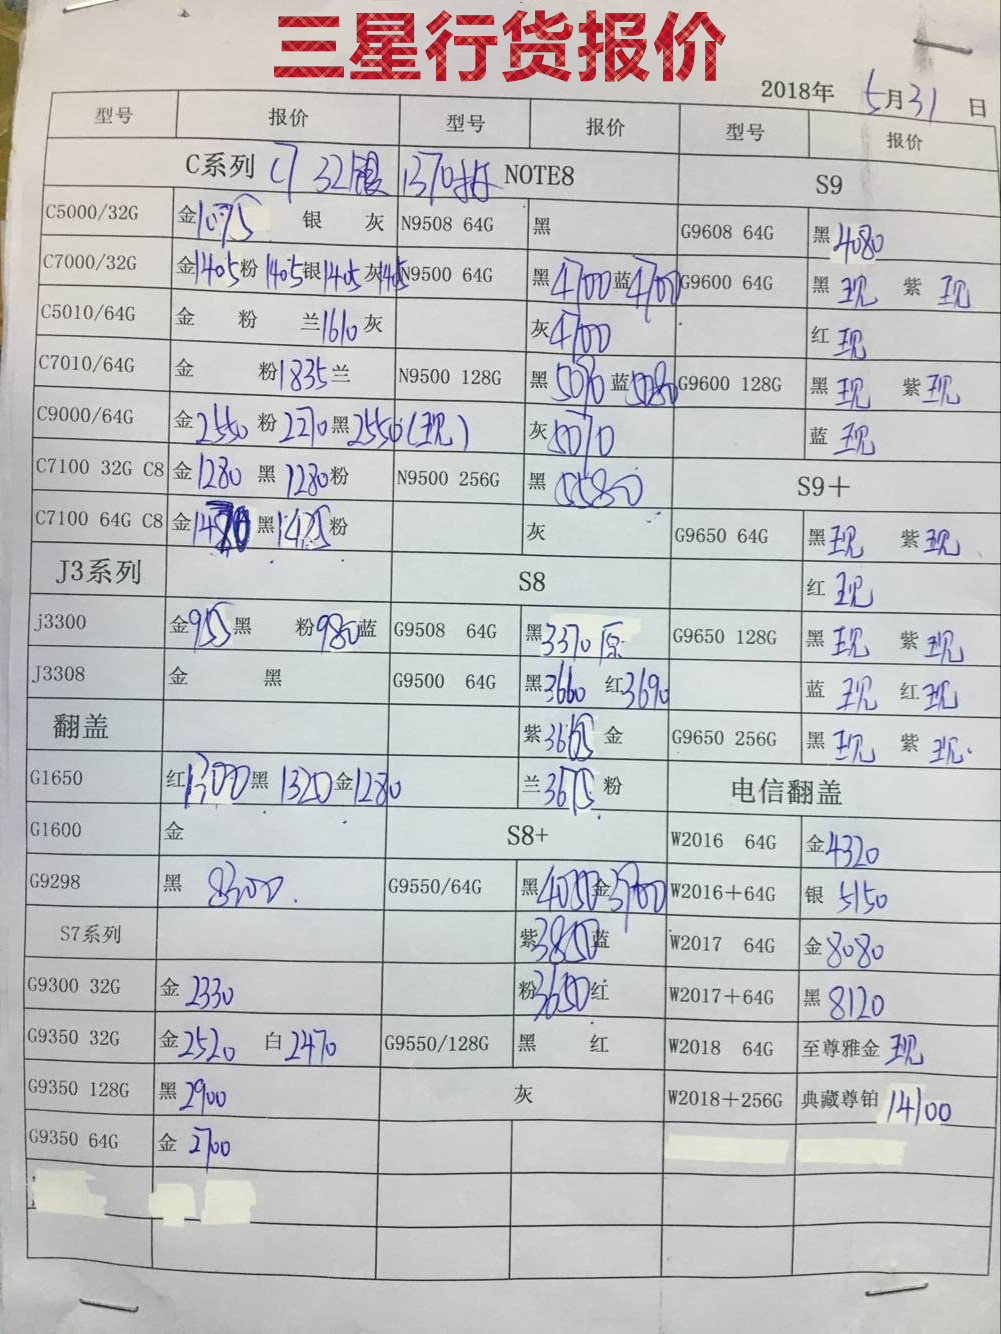 三星行货报价
2018年 5月31日
型号 报价 型号 报价 型号 报价
C系列 C7 32银 1370 NOTE8 S9
C5000/32G 金1075 银 灰 N9508 64G 黑 G9608 64G 黑4080
C7000/32G 金1405粉1405银1405灰1405 N9500 64G 黑4700蓝4700 G9600 64G 黑现 紫现
C5010/64G 金 粉 兰1610灰 灰4700 红现
C7010/64G 金 粉1835兰 N9500 128G 黑 蓝5080 G9600 128G 黑现 紫现
C9000/64G 金2550粉2270黑2550(现) 灰5070 蓝现
C7100 32G C8 金1280 黑1280粉 N9500 256G 黑5580 S9+
C7100 64G C8 金 黑1425粉 灰 G9650 64G 黑现 紫现
J3系列 S8 红现
j3300 金955黑 粉980蓝 G9508 64G 黑3370原 G9650 128G 黑现 紫现
J3308 金 黑 G9500 64G 黑3660 红3690 蓝现 红现
翻盖 紫3665金 G9650 256G 黑现 紫现
G1650 红1300黑1320金1280 兰3675粉 电信翻盖
G1600 金 S8+ W2016 64G 金4320
G9298 黑8300 G9550/64G 黑 金3700 W2016+64G 银5150
S7系列 紫3850蓝 W2017 64G 金8080
G9300 32G 金2330 粉3650红 W2017+64G 黑8120
G9350 32G 金2520 白2470 G9550/128G 黑 红 W2018 64G 至尊雅金现
G9350 128G 黑2900 灰 W2018+256G 典藏尊铂14100
G9350 64G 金2700